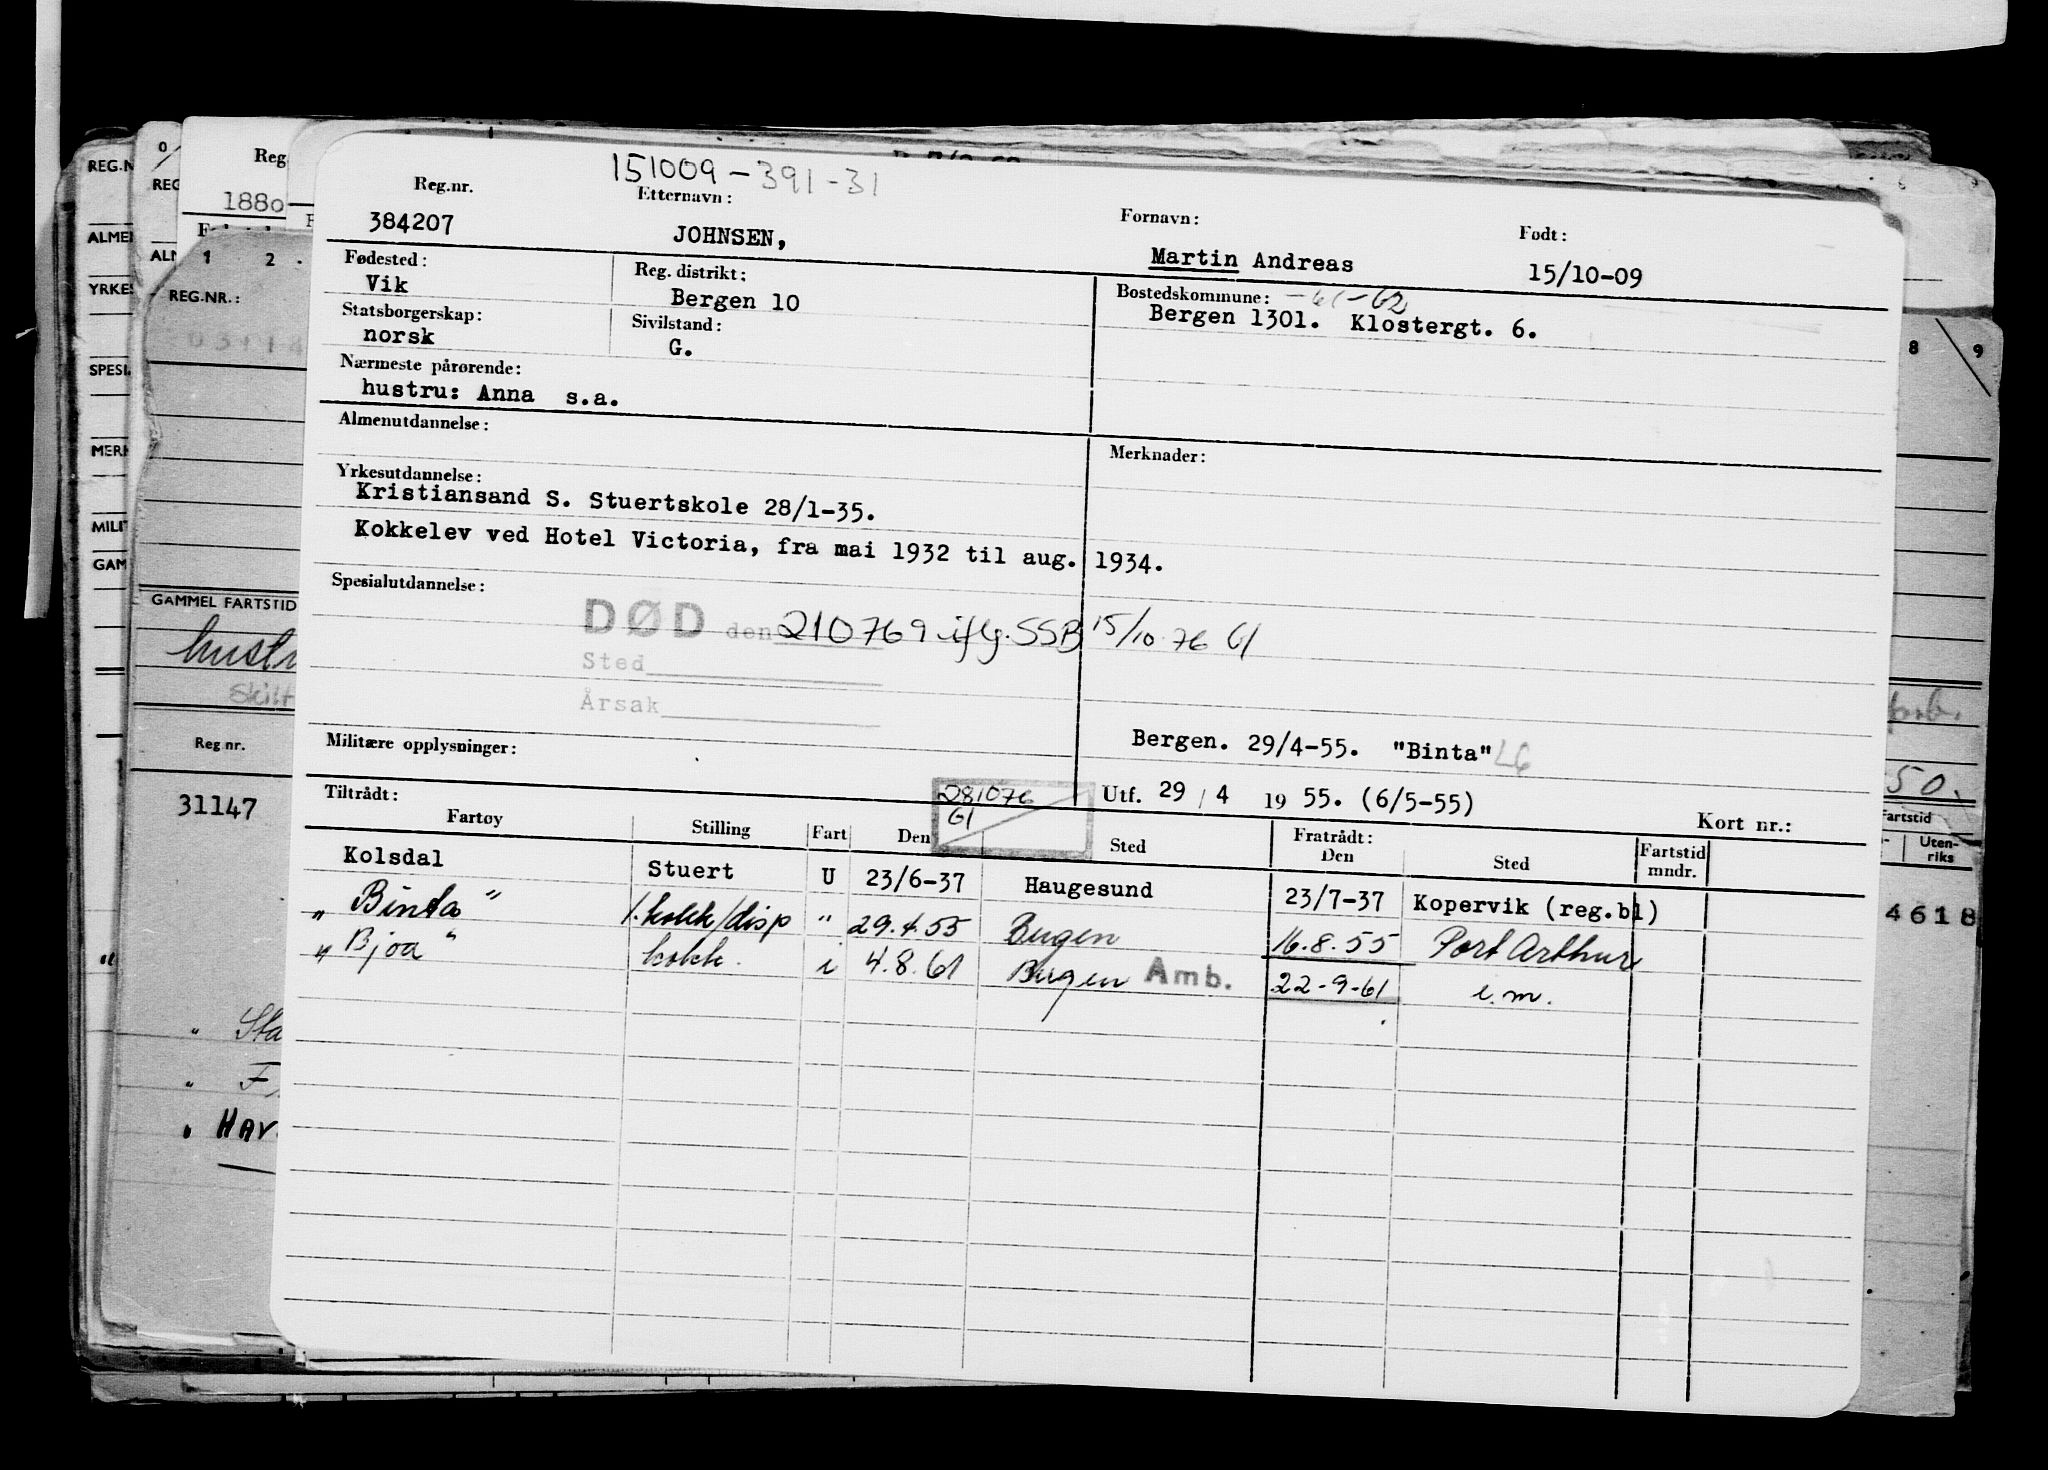 151009-391-31
Reg.nr. Etternavn: Fornavn: Født:
384207 JOHNSEN, Martin Andreas 15/10-09
Fødested: Reg. distrikt: Bostedskommune: -61-62
Vik Bergen 10 Bergen 1301. Klostergt. 6.
Statsborgerskap: Sivilstand:
norsk G.
Nærmeste pårørende:
hustru: Anna s.a.
Almenutdannelse: Merknader:
Yrkesutdannelse:
Kristiansand S. Stuertskole 28/1-35.
Kokkelev ved Hotel Victoria, fra mai 1932 til aug. 1934.
Spesialutdannelse:
DØD den 210769 iflg. SSB 15/10 76 G/
Sted
Årsak
Militære opplysninger:
Bergen. 29/4-55. "Binta" LG
Utf. 29/4 1955. (6/5-55)
281076
G/
Tiltrådt: Fratrådt: Kort nr.:
Fartøy Stilling Fart Den Sted Den Sted Fartstid mndr.
Kolsdal Stuert U 23/6-37 Haugesund 23/7-37 Kopervik (reg.bl)
" Binta " 1.kokk/disp " 29.4.55 Bergen 16.8.55 Port Arthur
" Bjoa " kokk. i 4.8.61 Bergen Amb. 22-9-61 i.m.
REG.N
ALMEN
YRKES
SPESI
MERK
MILIT
GAM
Reg
1880
1 2
REG.NR.:
GAMMEL FARTSTID
hustr
Skilt
Reg nr.
31147
" Sta
" F
" HAV
8 9
50.
Fartstid
Uten-
riks
4618